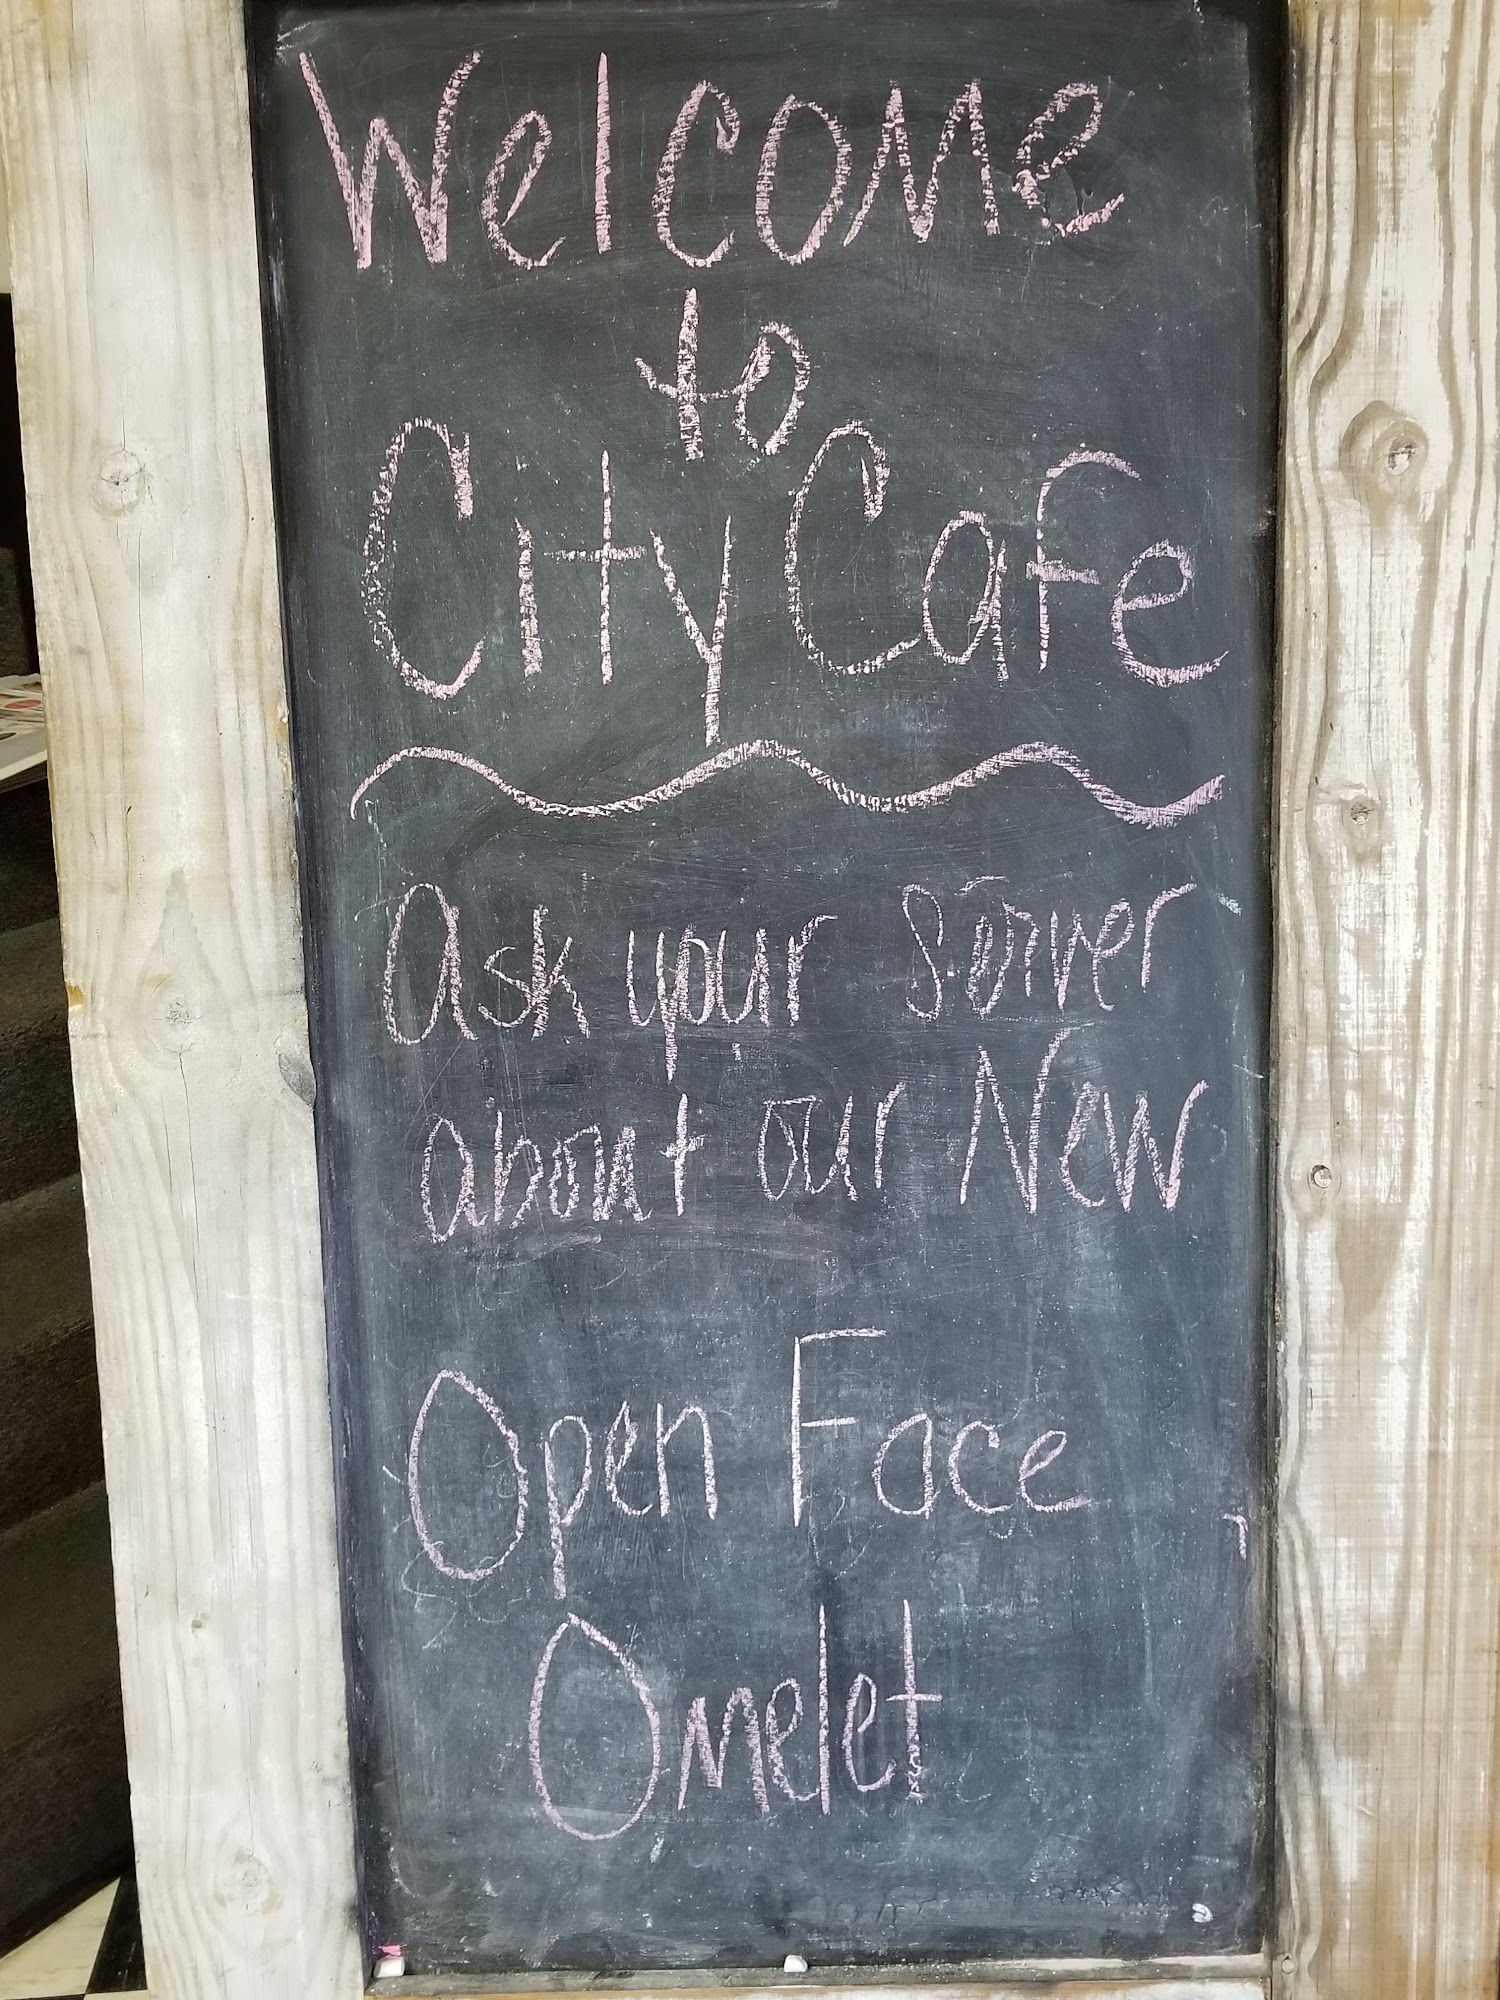 Welcome
to
City Cafe
Ask your server
about our New
Open Face
Omelet